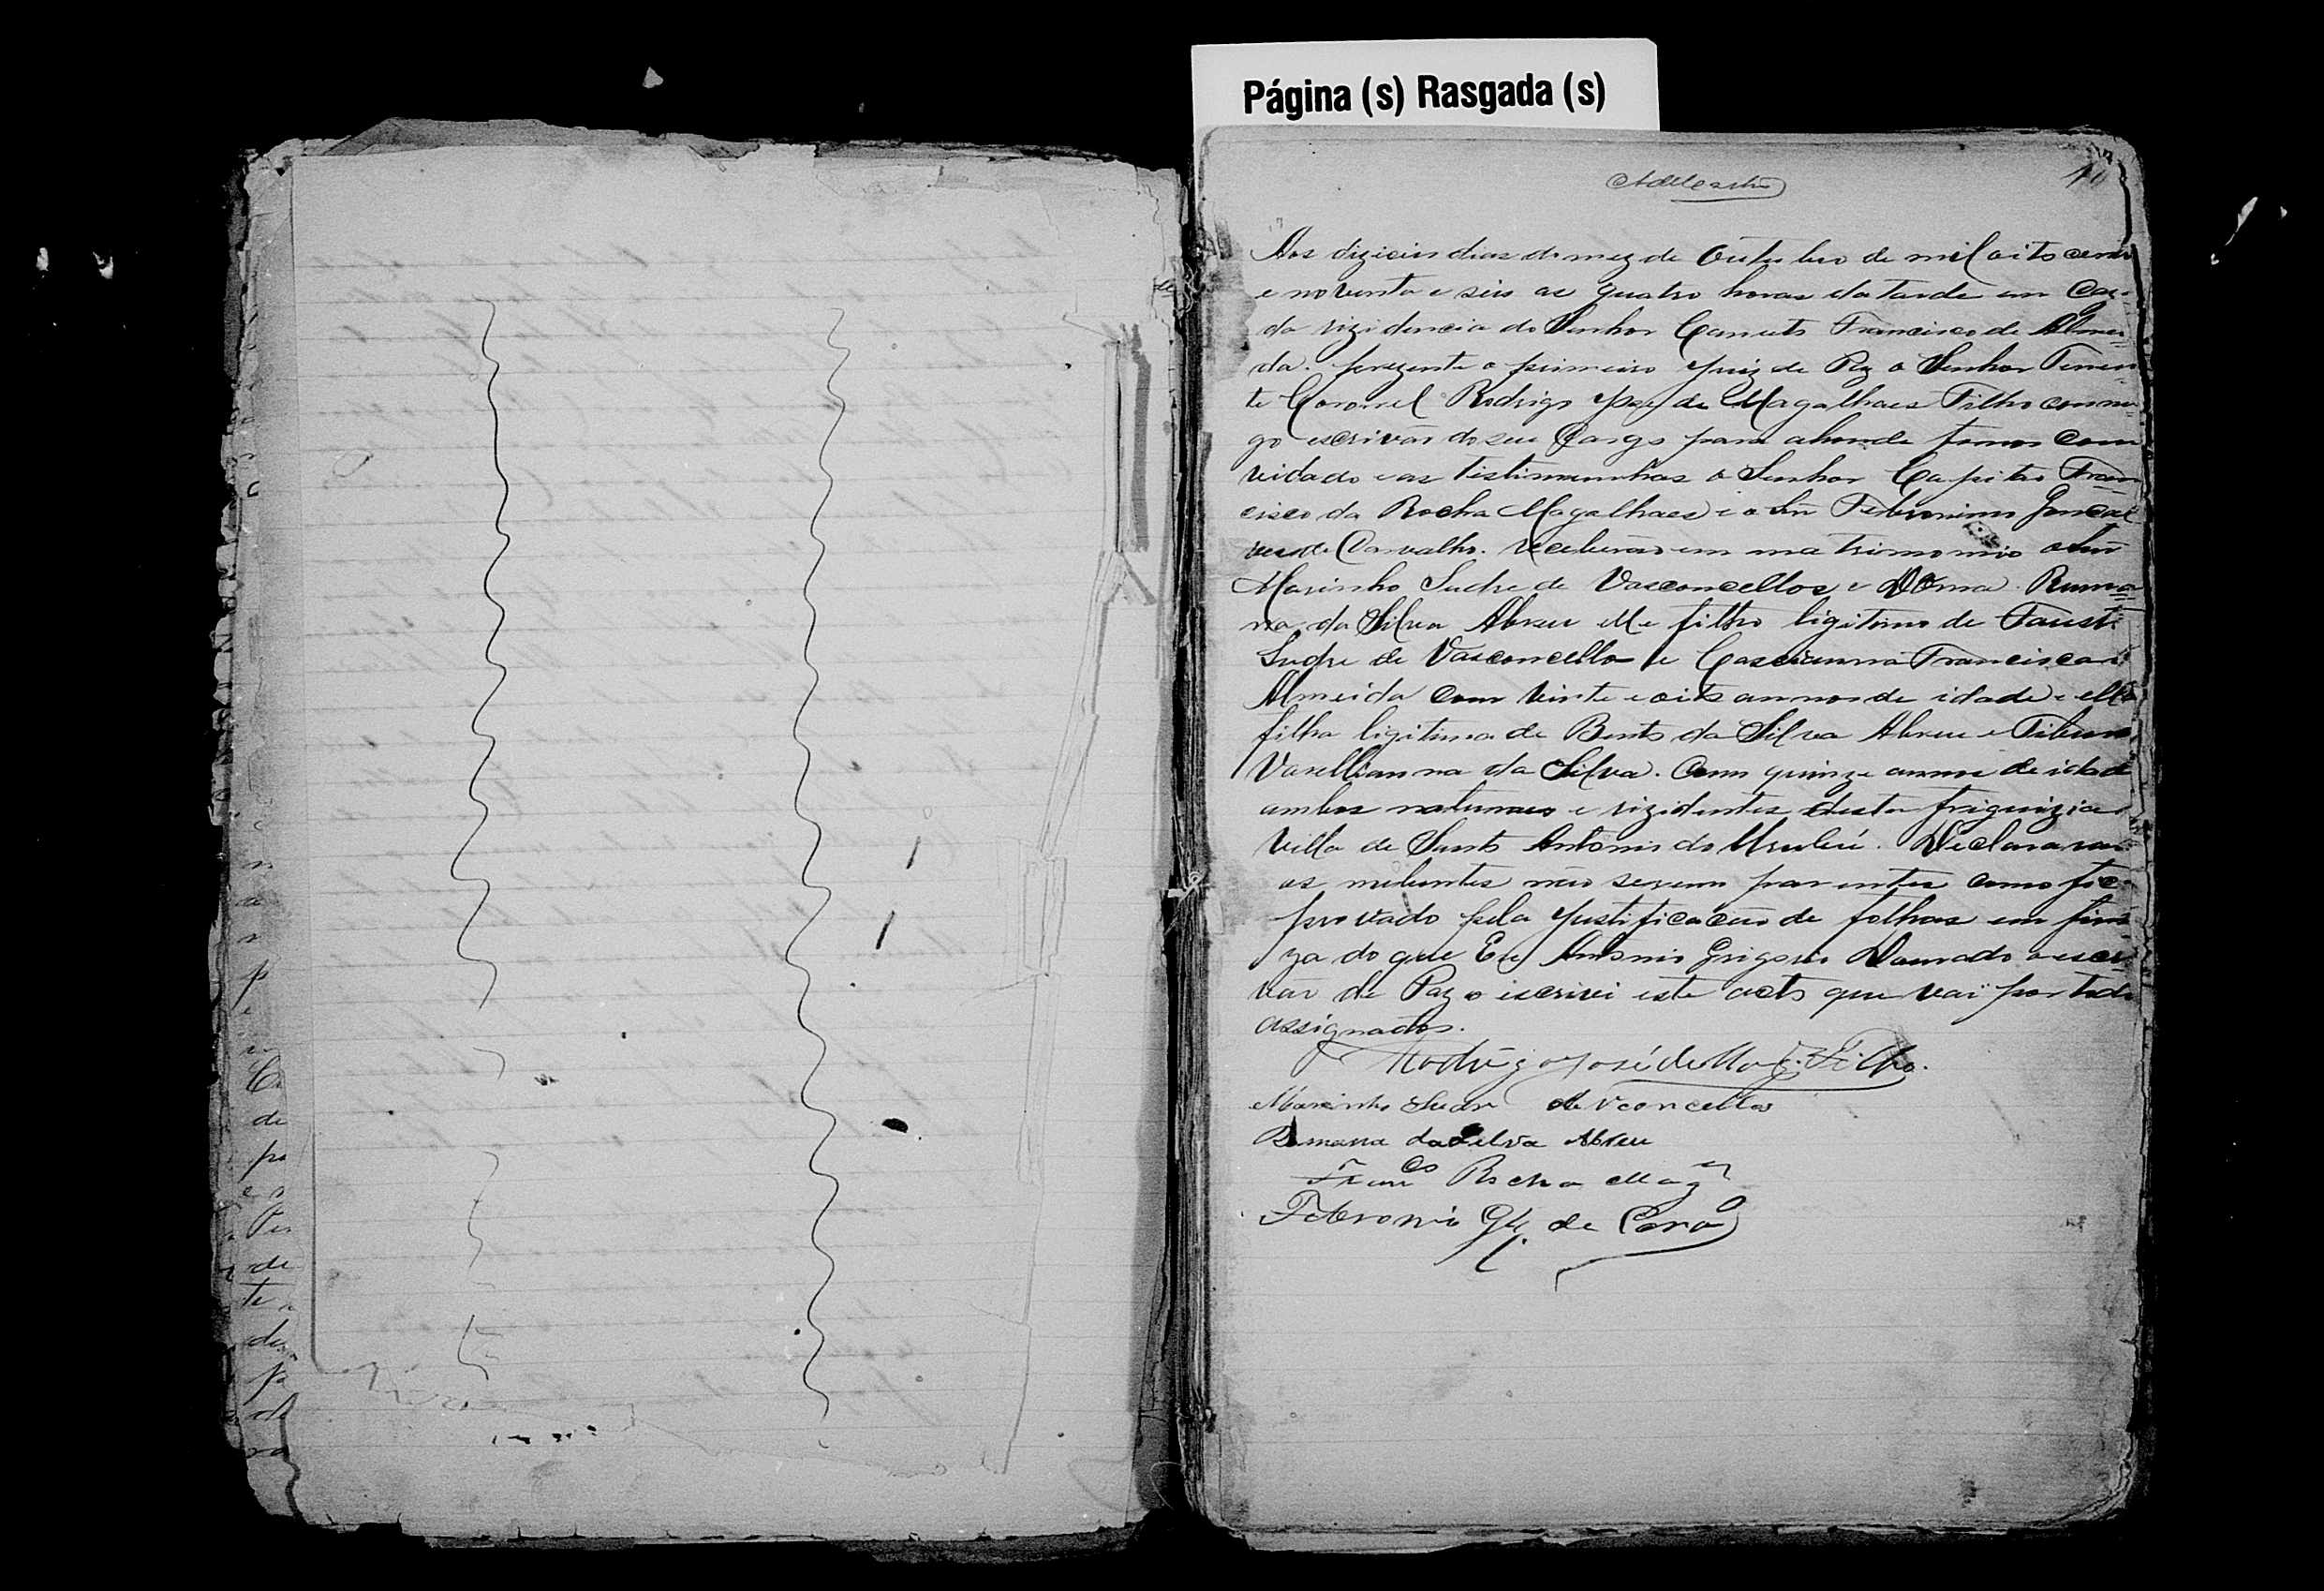 Página (s) Rasgada (s)
Aos diziseis dias do mez de Outubro de mil oito cento
e noventa e seis as quatro horas da tarde em Caza
da rizidencia do Senhor Canuto Francisco de Almei-
da. prezente o primeiro Juiz de Paz o Senhor Tenen
te Coronel Rodrigo Joze de Magalhaes Filho commi-
go escrivão do seu Cargo para ahonde fomos Com
vidado e as Testimunhas o Senhor Capitão Fran-
cisco da Rocha Magalhaes e o Snr Febronimo Goncal
ves de Carvalho. receberão em matrimonio o Snr
Marinho Sudre de Vasconcellos e Dona Ruma-
na da Silva Abreu elle filho ligitimo de Faust
Sudre de Vasconcello e Cascianna Francisca d
Almeida com vinte e oito annos de idade e ella
filha ligitima de Bento da Silva Abreu e
da Silva. Com quinze annos de idad
ambos naturaes e rizidentes desta friguizia
Villa de Santo Antonio do Urubú. Declararam
os nubentes não serem parentes como fic
provado pela Justificacão de folhas em firm
za do que Eu Antonio Grigorio Dourado o escri
vão de Paz o iscrivi este acto que vai por todo
assignados.
Rodrigo José de Mag. Filho.
Marinho Sudr de Vconcellos
Romana da Silva Abreu
Franco Rocha Mag
Febronio Glz. de Caro